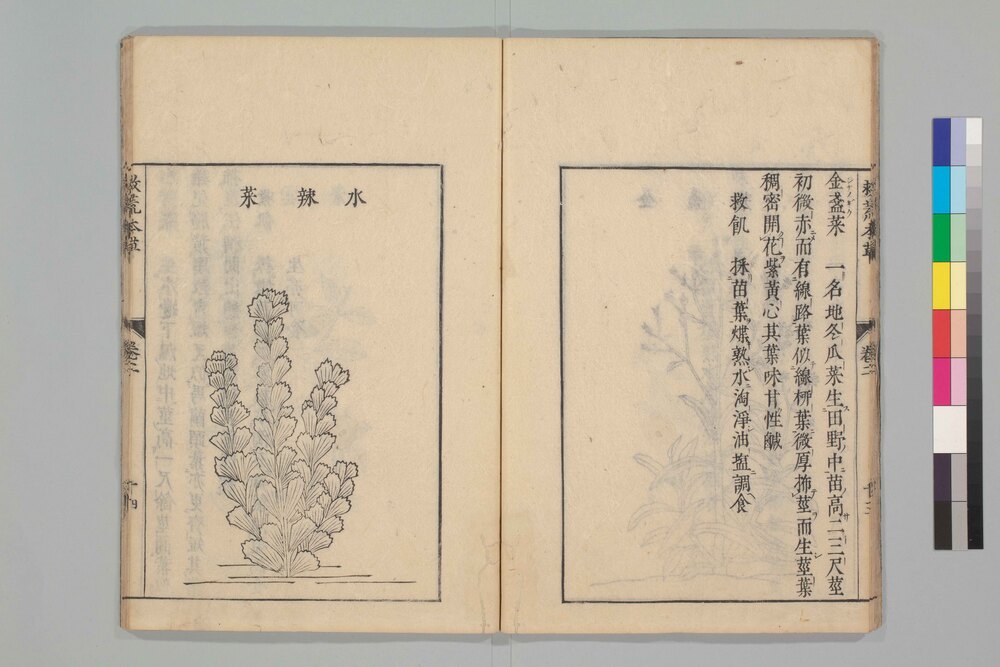 金盞菜 一名地冬瓜菜生田野中苗高二三尺莖
初微赤而有線路葉似線柳葉微厚抪莖而生莖葉
稠密開花紫黃心其葉味甘性鹹
救飢 採苗葉煠熟水淘淨油塩調食
救荒本草
卷二
十三
水辣菜
救荒本草
卷二
十四